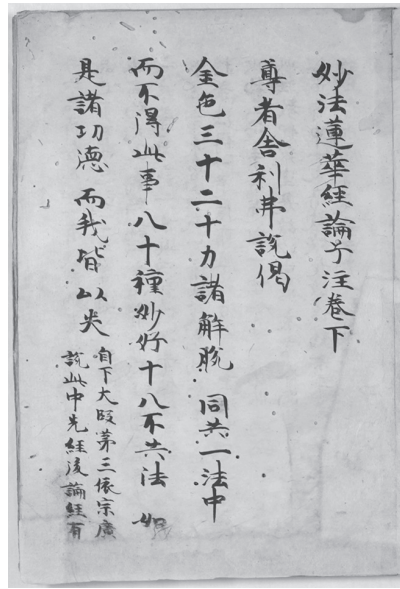 妙法蓮華經論子注卷下
尊者舍利弗說偈
金色三十二十力諸解脫 同共一法中
而不得此事八十種妙好十八不共法 如
是諸功德 而我皆以失
自下大段第三依宗廣
說此中先經後論經有